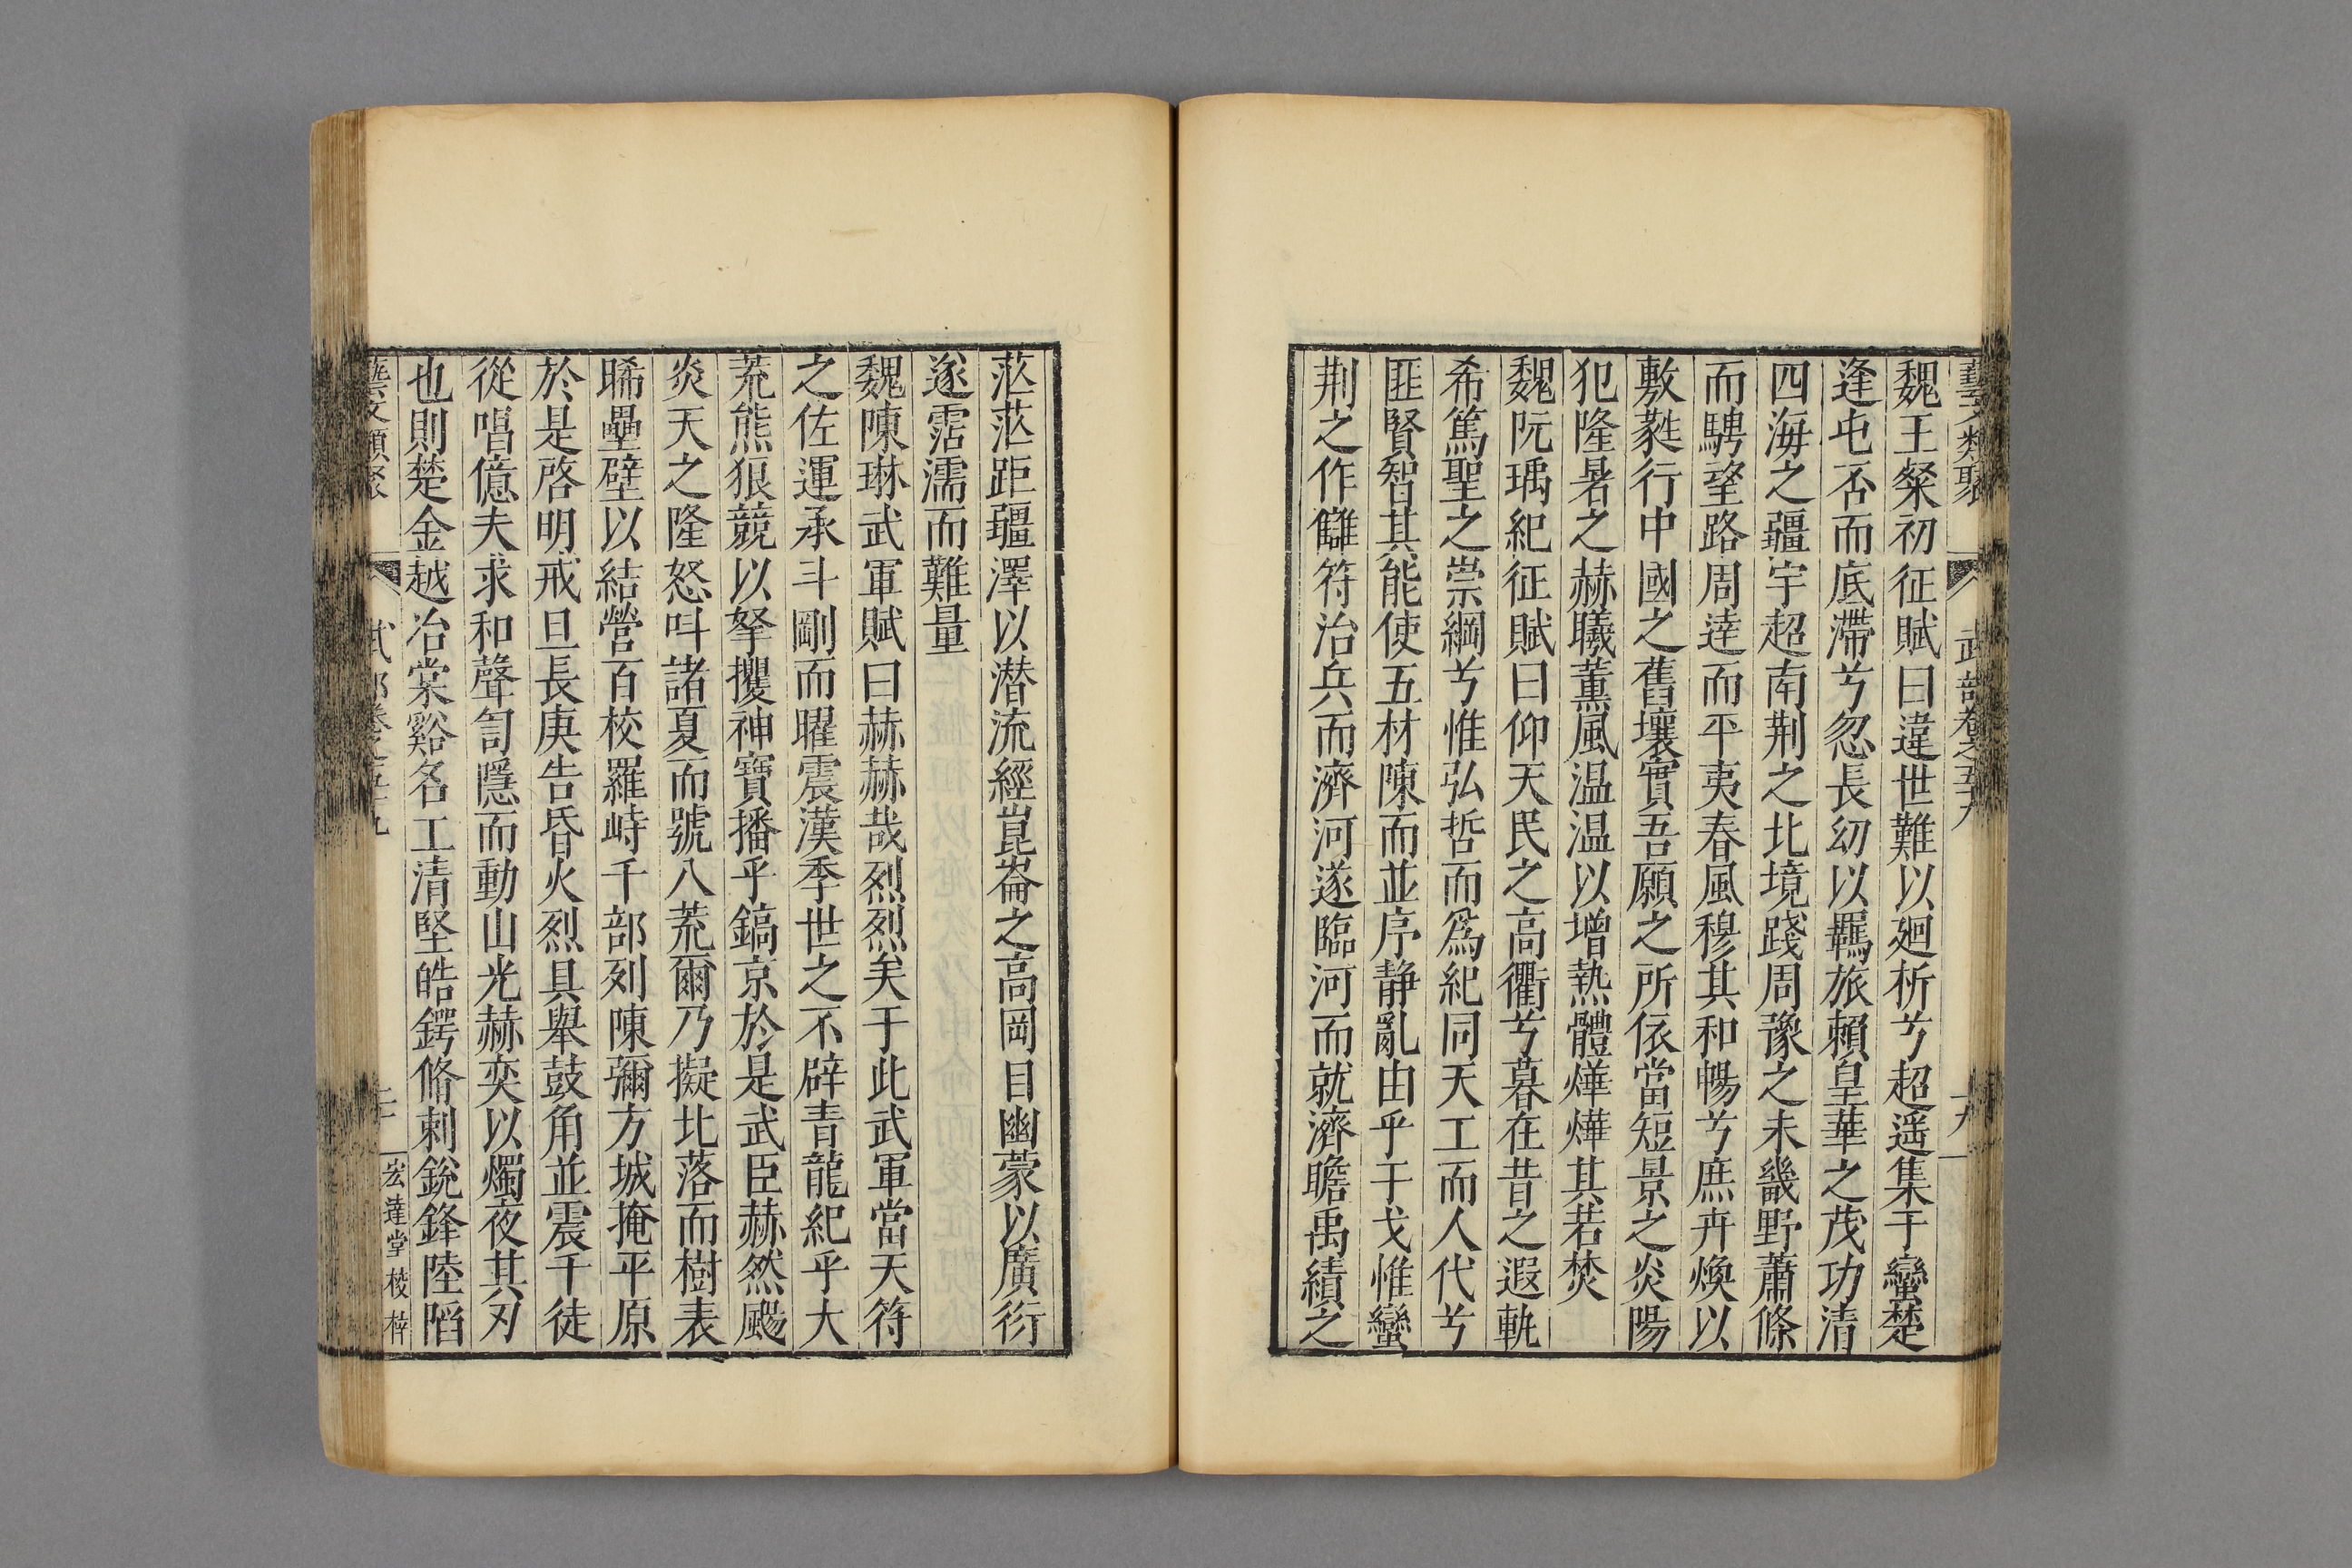 藝文類聚 武部卷之五十九 十九
魏王粲初征賦曰違世難以廻析兮超遥集于蠻楚
逢屯否而底滯兮忽長㓜以羈旅賴皇華之茂功清
四海之疆宇超南荆之北境踐周豫之末畿野蕭條
而騁望路周達而平夷春風穆其和暢兮庶卉煥以
敷蕤行中國之舊壤實吾願之所依當短景之炎陽
犯隆暑之赫曦薰風温温以增熱體燁燁其若焚
魏阮瑀紀征賦曰仰天民之高衢兮慕在昔之遐軌
希篤聖之崇綱兮惟弘哲而爲紀同天工而人代兮
匪賢智其能使五材陳而並序静亂由乎干戈惟蠻
荆之作讎將治兵而濟河遂臨河而就濟瞻禹績之
茫茫距疆澤以潜流經崑崙之高岡目幽蒙以廣衍
遂霑濡而難量
魏陳琳武軍賦曰赫赫哉烈烈矣于此武軍當天符
之佐運承斗剛而曜震漢季世之不辟青龍紀乎大
荒熊狼競以拏攫神寶播乎鎬京於是武臣赫然颺
炎天之隆怒叫諸夏而號八荒爾乃擬北落而樹表
晞壘壁以結營百校羅峙千部列陳彌方城掩平原
於是啓明戒旦長庚告昏火烈具舉鼓角並震千徒
從唱億夫求和聲訇隱而動山光赫奕以燭夜其刃
也則楚金越冶棠谿名工清堅皓鍔脩刺銳鋒陸䧟
藝文類聚 武部卷之五十九 二十 宏達堂校梓